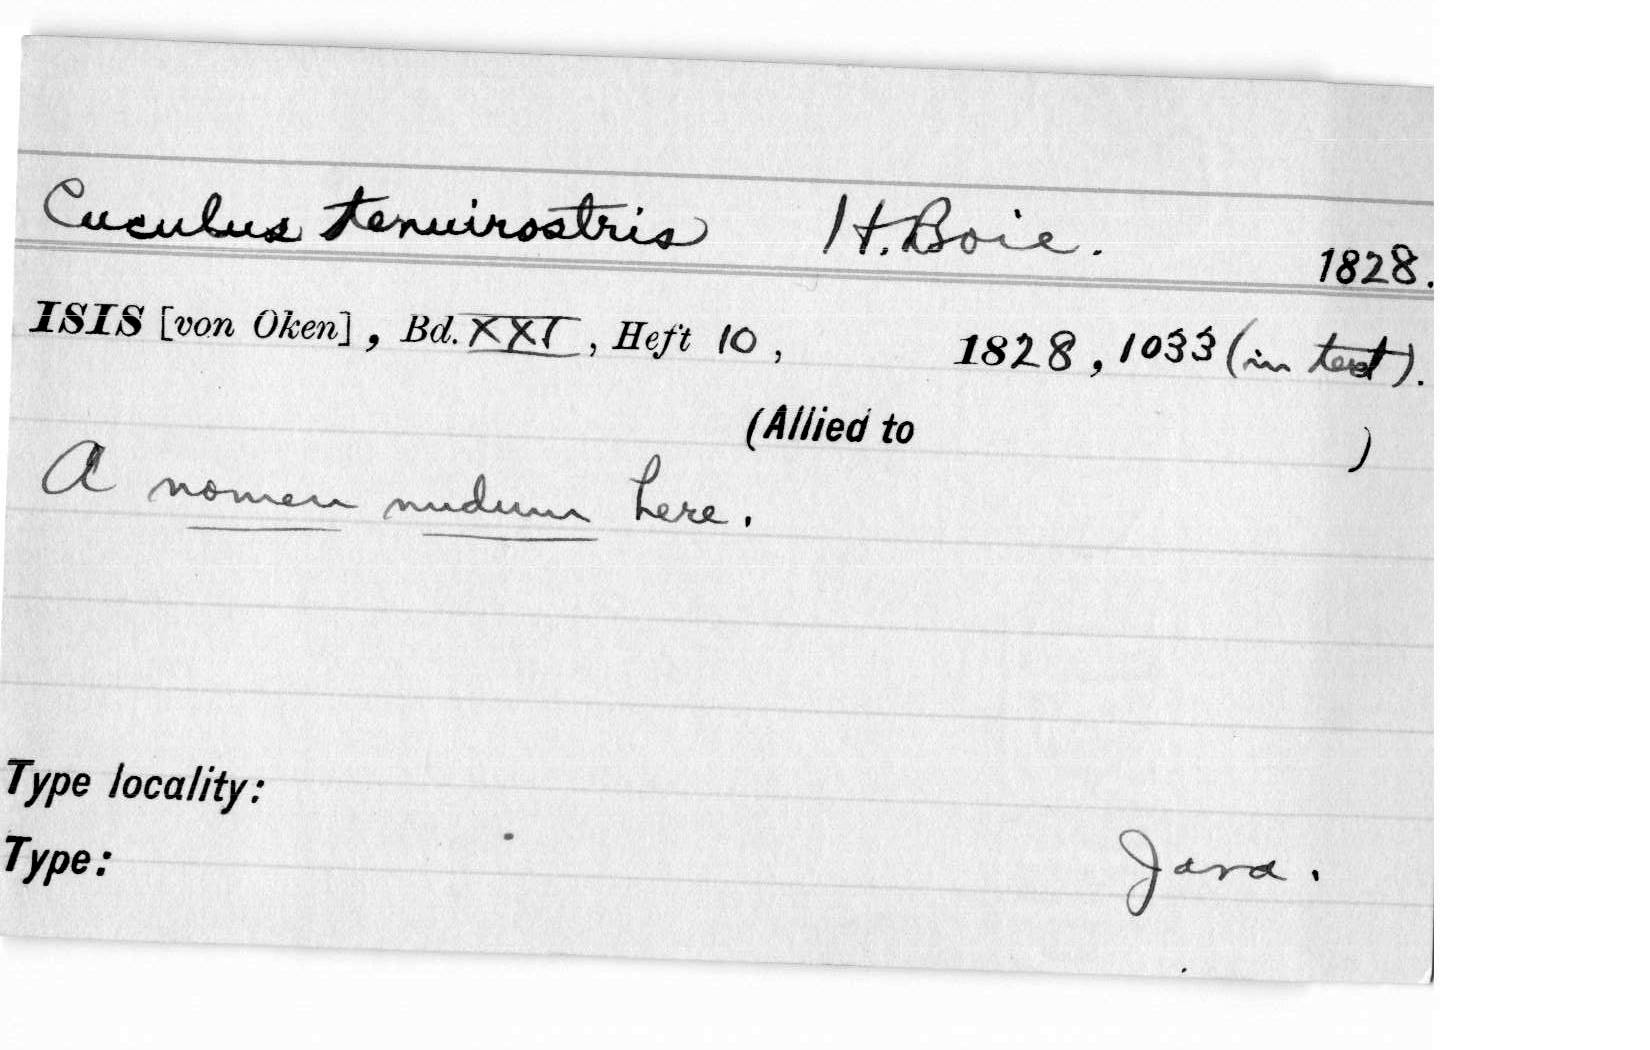 Cuculus tenuirostris H. Boie. 1828.
ISIS [von Oken], Bd. XXI, Heft 10, 1828, 1033 (in text).
(Allied to )
A nomen nudum here.
Type locality:
Type: Java.